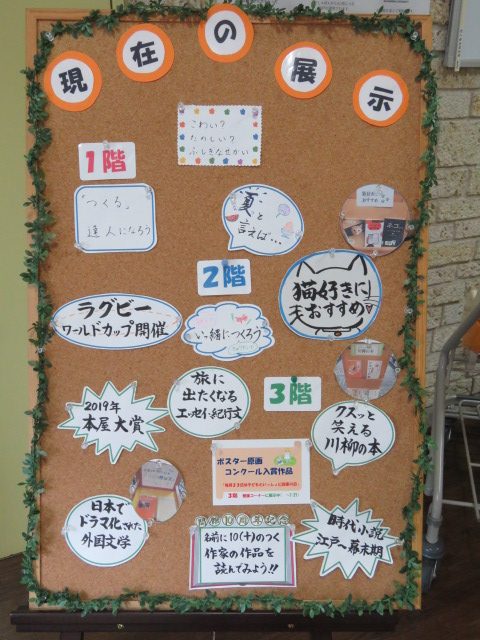 現在の展示
こわい？
たのしい？
ふしぎなせかい
1階
「つくる」
達人になろう
「夏」と
言えば…
2階
猫好きに
おすすめ
ラグビー
ワールドカップ開催
いっ緒につくろう
旅に
出たくなる
エッセイ・紀行文
3階
2019年
本屋大賞
クスッと
笑える
川柳の本
ポスター原画
コンクール入賞作品
3階
日本で
ドラマ化された
外国文学
名前に10(十)のつく
作家の作品を
読んでみよう!!
時代小説
江戸～幕末期